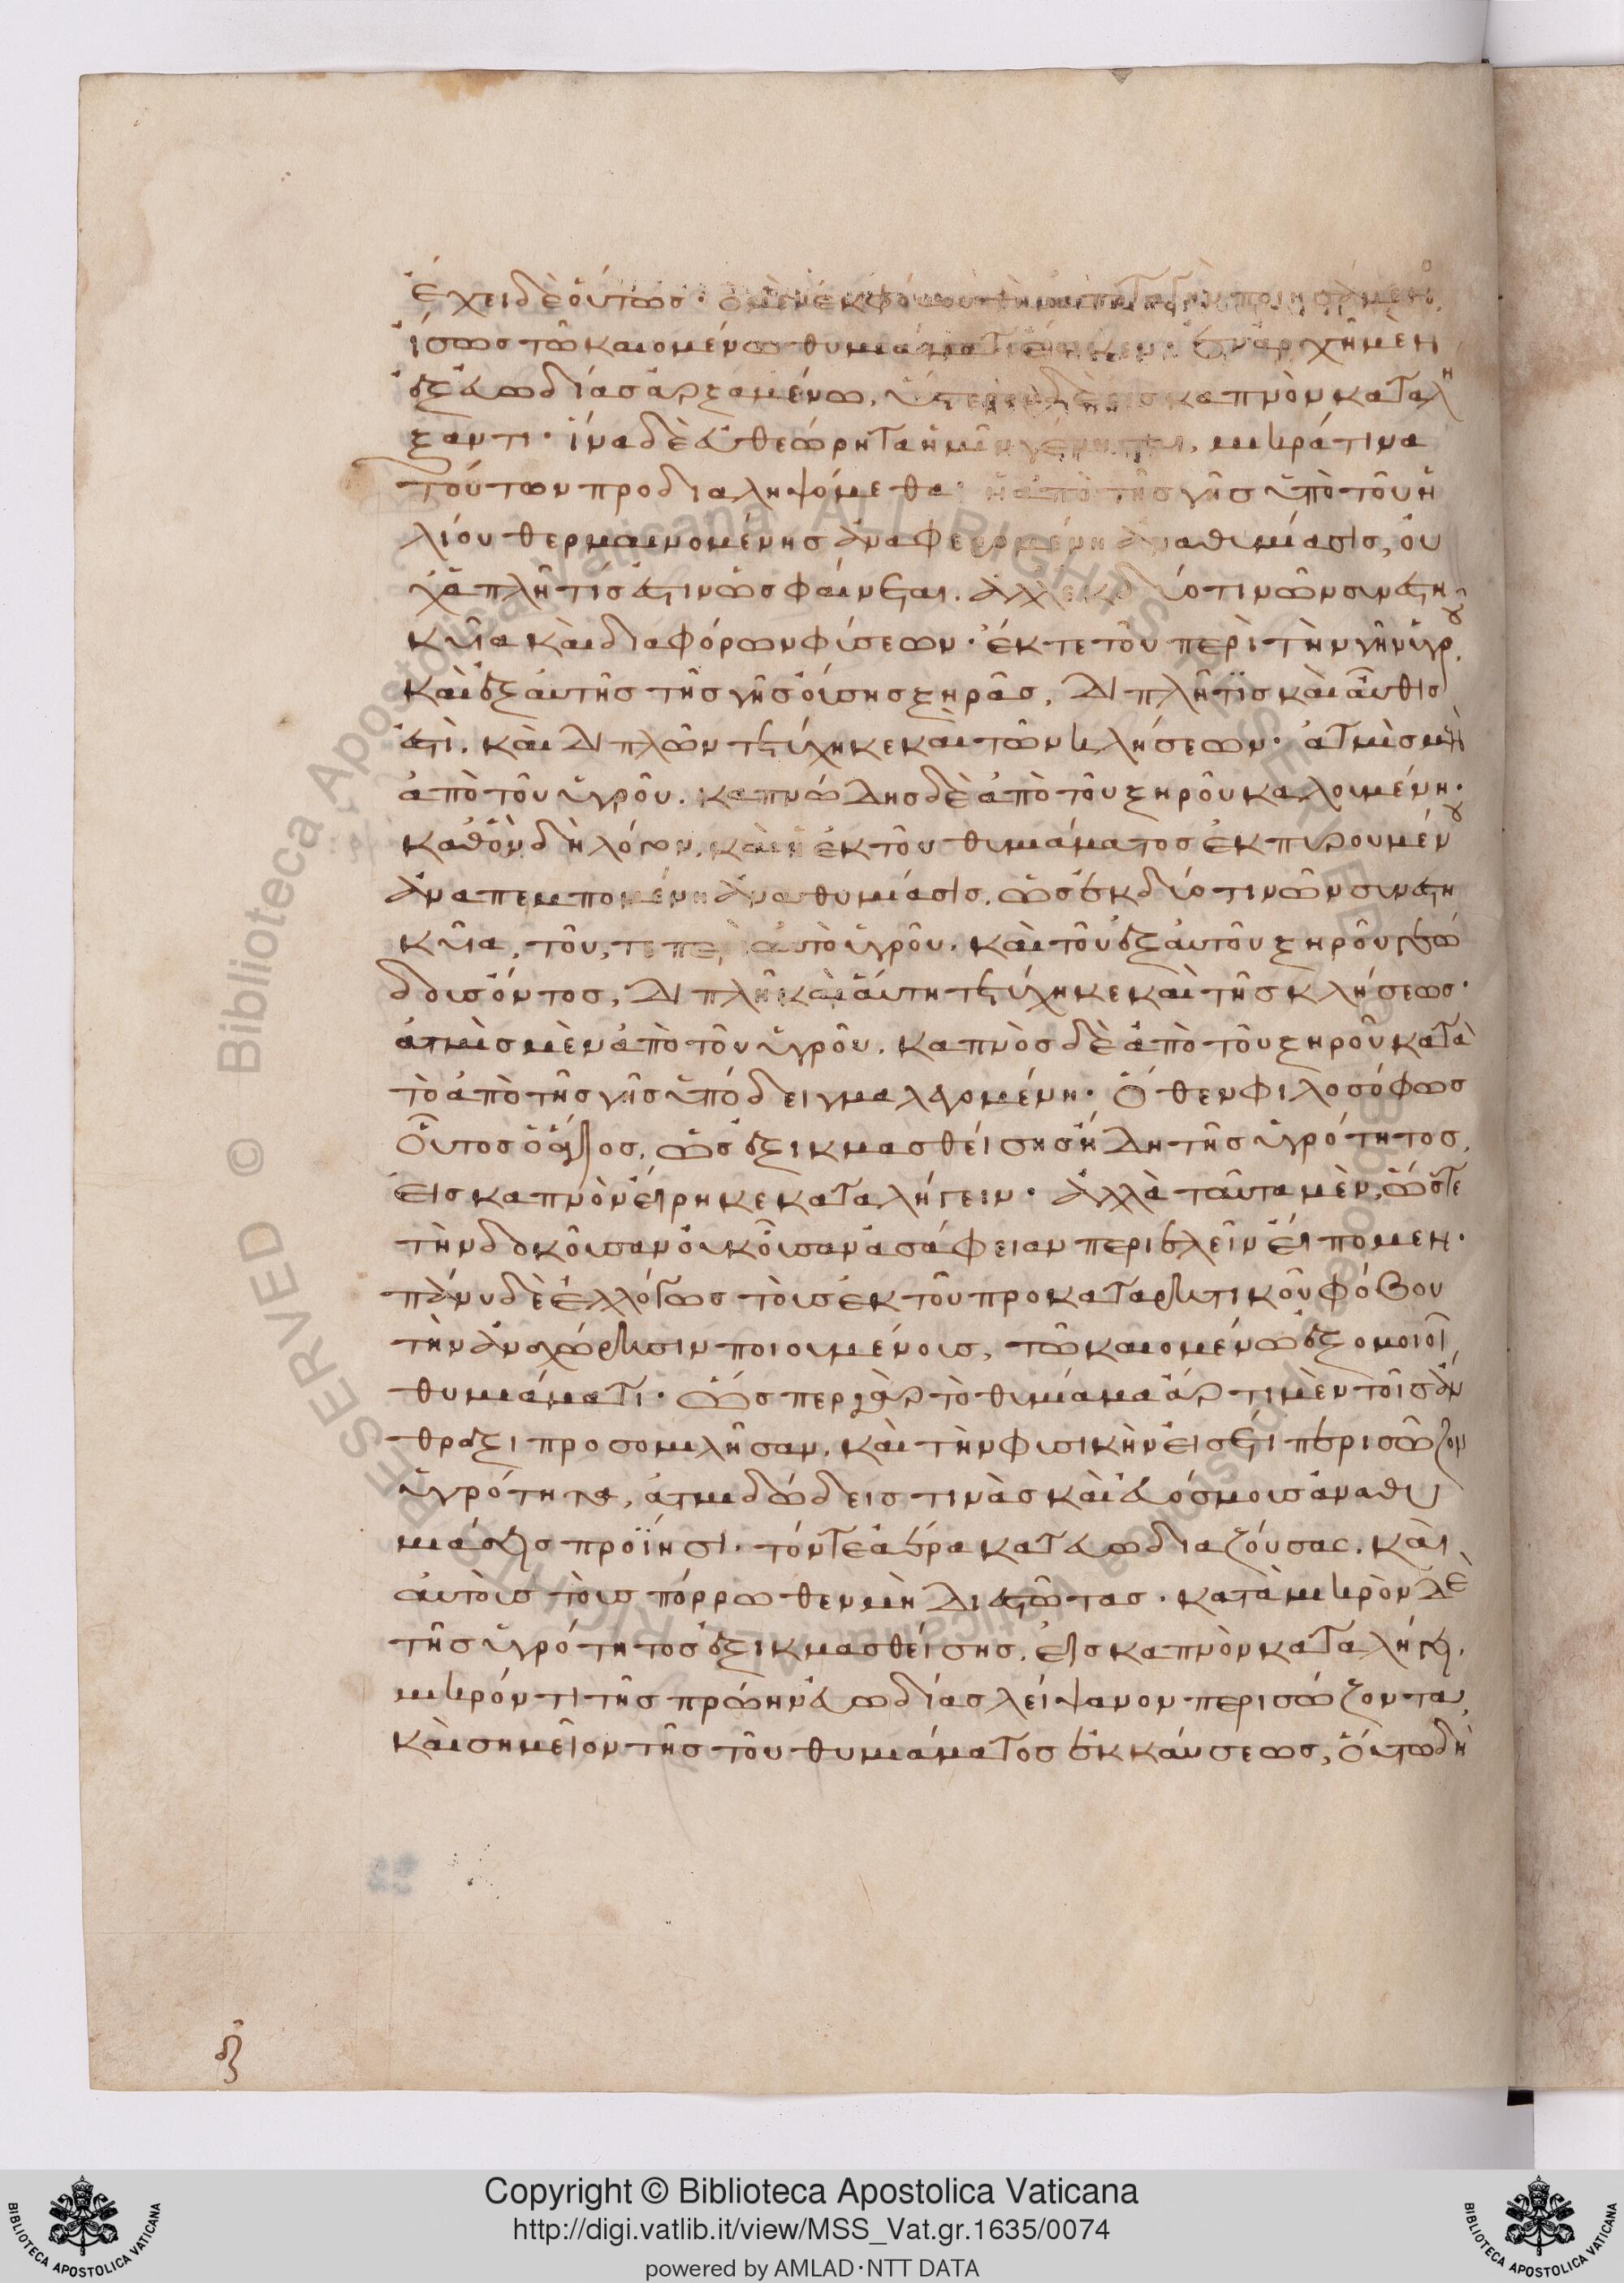 ἔχει δὲ οὕτως· ὁ μὲν ἐκ φόβου τὴν
ἴσως τῶ καιομένω θυμιάματι ἔοικεν· ἐν ἀρχῇ μὲν
ἐξ εὐωδίας ἀρξαμένω, ὕστερον δὲ εἰς καπνὸν καταλή
ξαντι· ἵνα δὲ εὐθεώρητα ἡμῖν γένηται, μικρά τινα
τούτων προδιαληψόμεθα· ἡ ἀπὸ τῆς γῆς ὑπὸ τοῦ ἡ
λίου θερμαινομένης ἀναφερομένη ἀναθυμίασις, οὐ
χ᾽ ἁπλῆ τίς ἐστιν ὡς φαίνεται. ἀλλ᾽ ἐκ δύο τινῶν συνεστη
κυῖα καὶ διαφόρων φύσεων· ἔκ τε τοῦ περὶ τὴν γῆν ὑγροῦ,
καὶ ἐξ αὐτῆς τῆς γῆς οὔσης ξηρᾶς, διπλῆ τίς καὶ αὖθις
ἐστί. καὶ διπλῶν τετύχηκε καὶ τῶν κλήσεων· ἀτμὶς μὲν
ἀπὸ τοῦ ὑγροῦ. καπνώδης δὲ ἀπὸ τοῦ ξηροῦ καλουμένη·
καθ᾽ ὃν δὴ λόγον, καὶ ἡ ἐκ τοῦ θυμιάματος ἐκπυρουμένου
ἀναπεμπομένη ἀναθυμίασις. ὡς ἐκ δύο τινῶν συνεστη
κυῖα, τοῦ, τε περὶ αὐτὸ ὑγροῦ. καὶ τοῦ ἐξ αὐτοῦ ξηροῦ γεώ
δους ὄντος, διπλῆ καὶ αὕτη τετύχηκε καὶ τῆς κλήσεως·
ἀτμὶς μὲν ἀπὸ τοῦ ὑγροῦ. καπνὸς δὲ ἀπὸ τοῦ ξηροῦ κατὰ
τὸ ἀπὸ τῆς γῆς ὑπόδειγμα λεγομένη· ὅθεν φιλοσόφως
οὗτος ὁ ἅγιος, ὡς ἐξικμασθείσης ἤδη τῆς ὑγρότητος,
εἰς καπνὸν εἴρηκε καταλήγειν· ἀλλὰ ταῦτα μὲν, ὥστε
τὴν δοκοῦσαν οὐκ οὖσαν ἀσάφειαν περιελεῖν εἴπομεν·
πάνυ δὲ ἐλλόγως τοὺς ἐκ τοῦ προκαταρκτικοῦ φόβου
τὴν ἀναχώρησιν ποιουμένους, τῶ καιομένω ἐξομοιοῖ
θυμιάματι· ὥσπερ γὰρ τὸ θυμίαμα ἄρτι μὲν τοῖς ἄν
θραξι προσομιλῆσαν. καὶ τὴν φυσικὴν εἰσέτι περισῶζον
ὑγρότητα, ἀτμιδώδεις τινὰς καὶ εὐόσμους ἀναθυ
μιάσεις προΐησι. τόν τε ἀέρα κατευωδιαζούσας. καὶ
αὐτοὺς τοὺς πόρρωθεν μὴ διεστῶτας. κατὰ μικρὸν δὲ
τῆς ὑγρότητος ἐξικμασθείσης. εἰς καπνὸν καταλήγει.
μικρόν τι τῆς πρώην εὐωδίας λείψανον περισώζοντα,
καὶ σημεῖον τῆς τοῦ θυμιάματος ἐκκαύσεως, οὕτω δὴ
Copyright © Biblioteca Apostolica Vaticana
http://digi.vatlib.it/view/MSS_Vat.gr.1635/0074
powered by AMLAD·NTT DATA
BIBLIOTECA APOSTOLICA VATICANA
BIBLIOTECA APOSTOLICA VATICANA